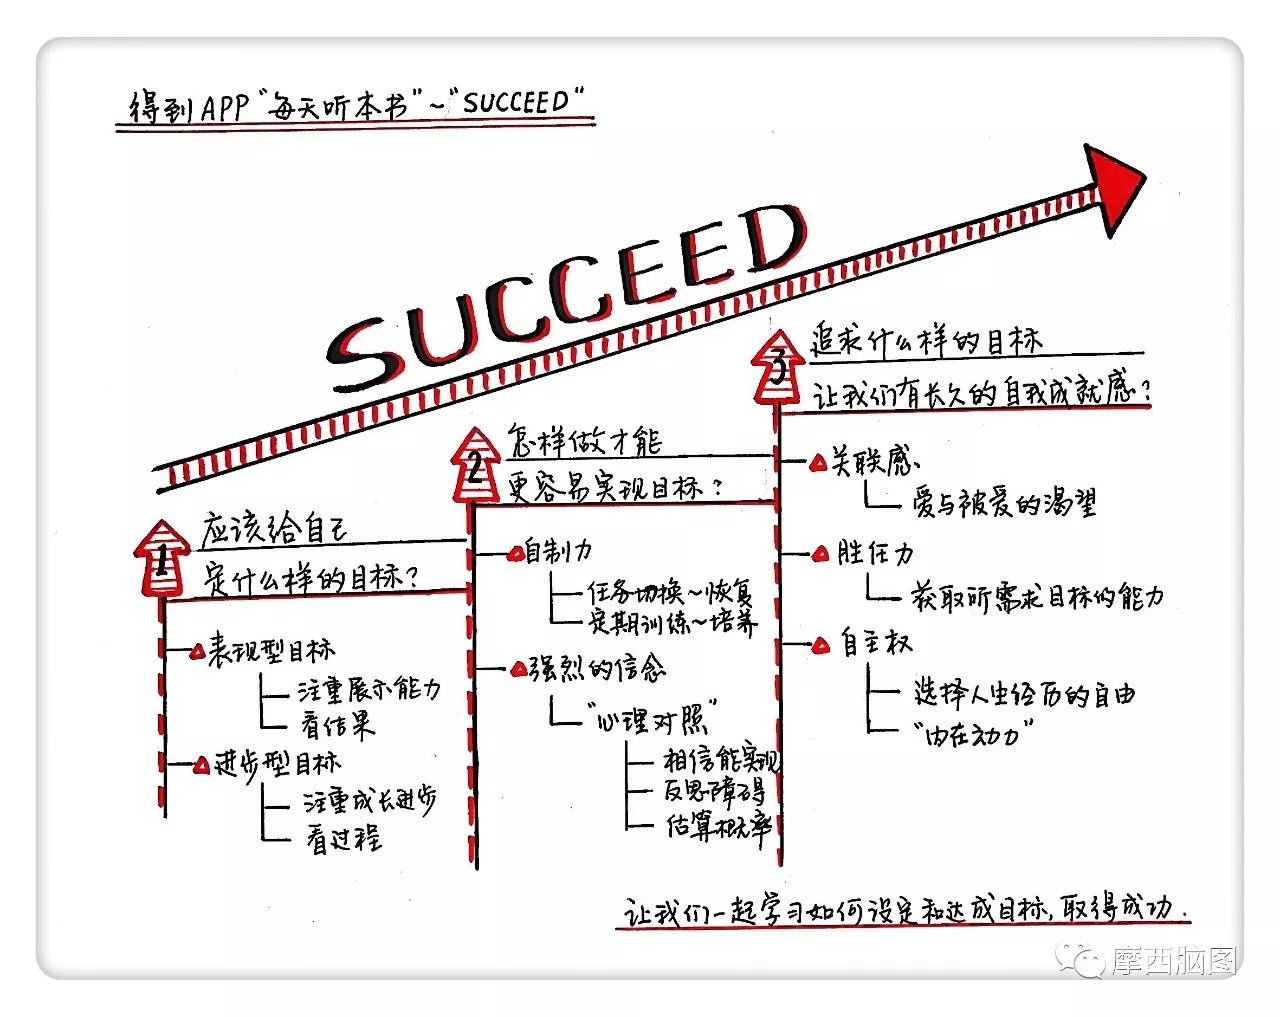 得到APP“每天听本书”~“SUCCEED”
SUCCEED
1
应该给自己
定什么样的目标?
表现型目标
注重展示能力
看结果
进步型目标
注重成长进步
看过程
2
怎样做才能
更容易实现目标?
自制力
任务切换~恢复
定期训练~培养
强烈的信念
“心理对照”
相信能实现
反思障碍
估算概率
3
追求什么样的目标
让我们有长久的自我成就感?
关联感
爱与被爱的渴望
胜任力
获取所需求目标的能力
自主权
选择人生经历的自由
“内在动力”
让我们一起学习如何设定和达成目标,取得成功.
摩西脑图